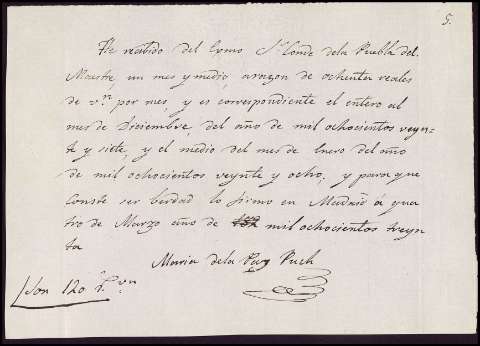 5.
He recibido del Exmo Sr. Conde dela Puebla del
Maestre, un mes y medio, arazon de ochenta reales
de v.n por mes, y es correspondiente el entero al
mes de Diciembre, del año de mil ochocientos veyn-
te y siete, y el medio del mes de Enero del año
de mil ochocientos veynte y ocho; y para que
Conste ser berdad lo firmo en Madrid á qua
tro de Marzo año de mil ochocientos treyn
ta
Maria dela Paz Puch
Son 120 r.s v.n